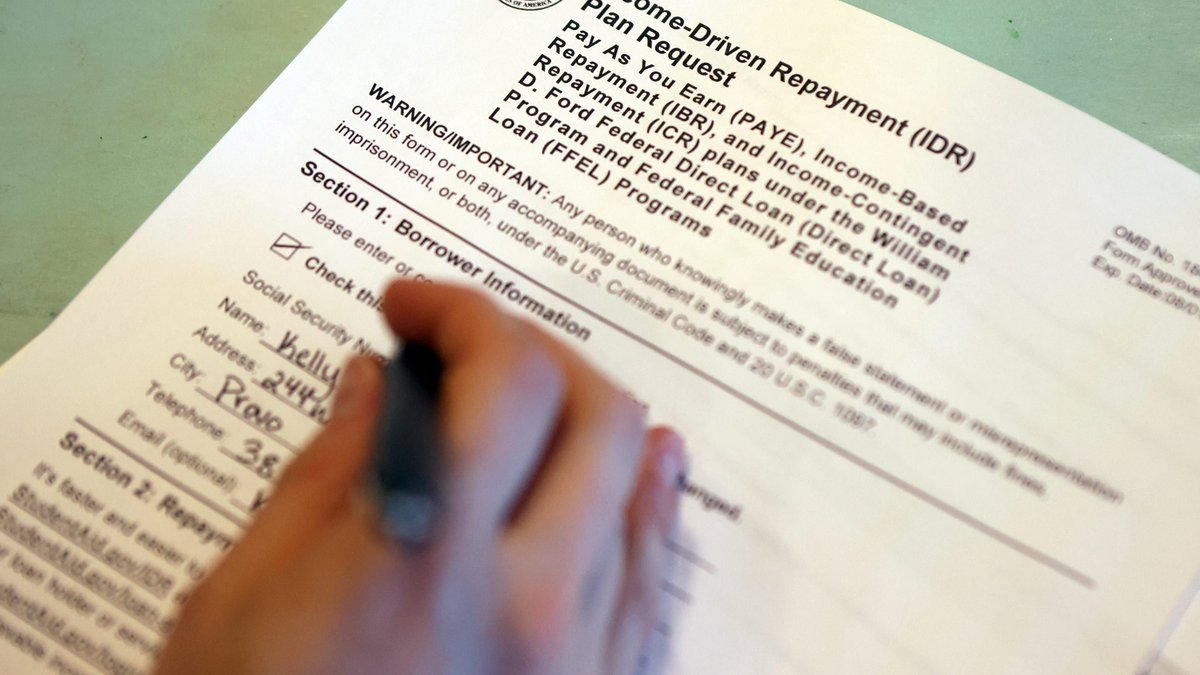 OF AMERICA
come-Driven Repayment (IDR)
Plan Request
Pay As You Earn (PAYE), Income-Based
Repayment (IBR), and Income-Contingent
Repayment (ICR) plans under the William
D. Ford Federal Direct Loan (Direct Loan)
Program and Federal Family Education
Loan (FFEL) Programs
OMB No. 18
Form Approve
Exp. Date:08/
WARNING/IMPORTANT: Any person who knowingly makes a false statement or misrepresentation
on this form or on any accompanying document is subject to penalties that may include fines,
imprisonment, or both, under the U.S. Criminal Code and 20 U.S.C. 1097.
Section 1: Borrower Information
Please enter or
Check this
changed
Social Security Num
Name: Kelly
Address: 244
City: Provo
Telephone: 38
Email (optional)
Section 2: Repaym
It's faster and easier to
StudentAid.gov/IDR
StudentAid.gov/
loan holder or